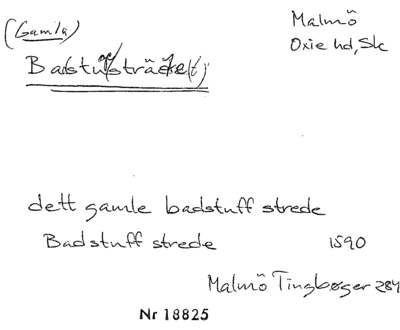 (Gamla)
Malmö
Oxie hd, Sk
Badstugusträdet(t)
dett gamle badstuff strede
Badstuff strede 1590
Malmö Tingbøger 284
Nr 18825